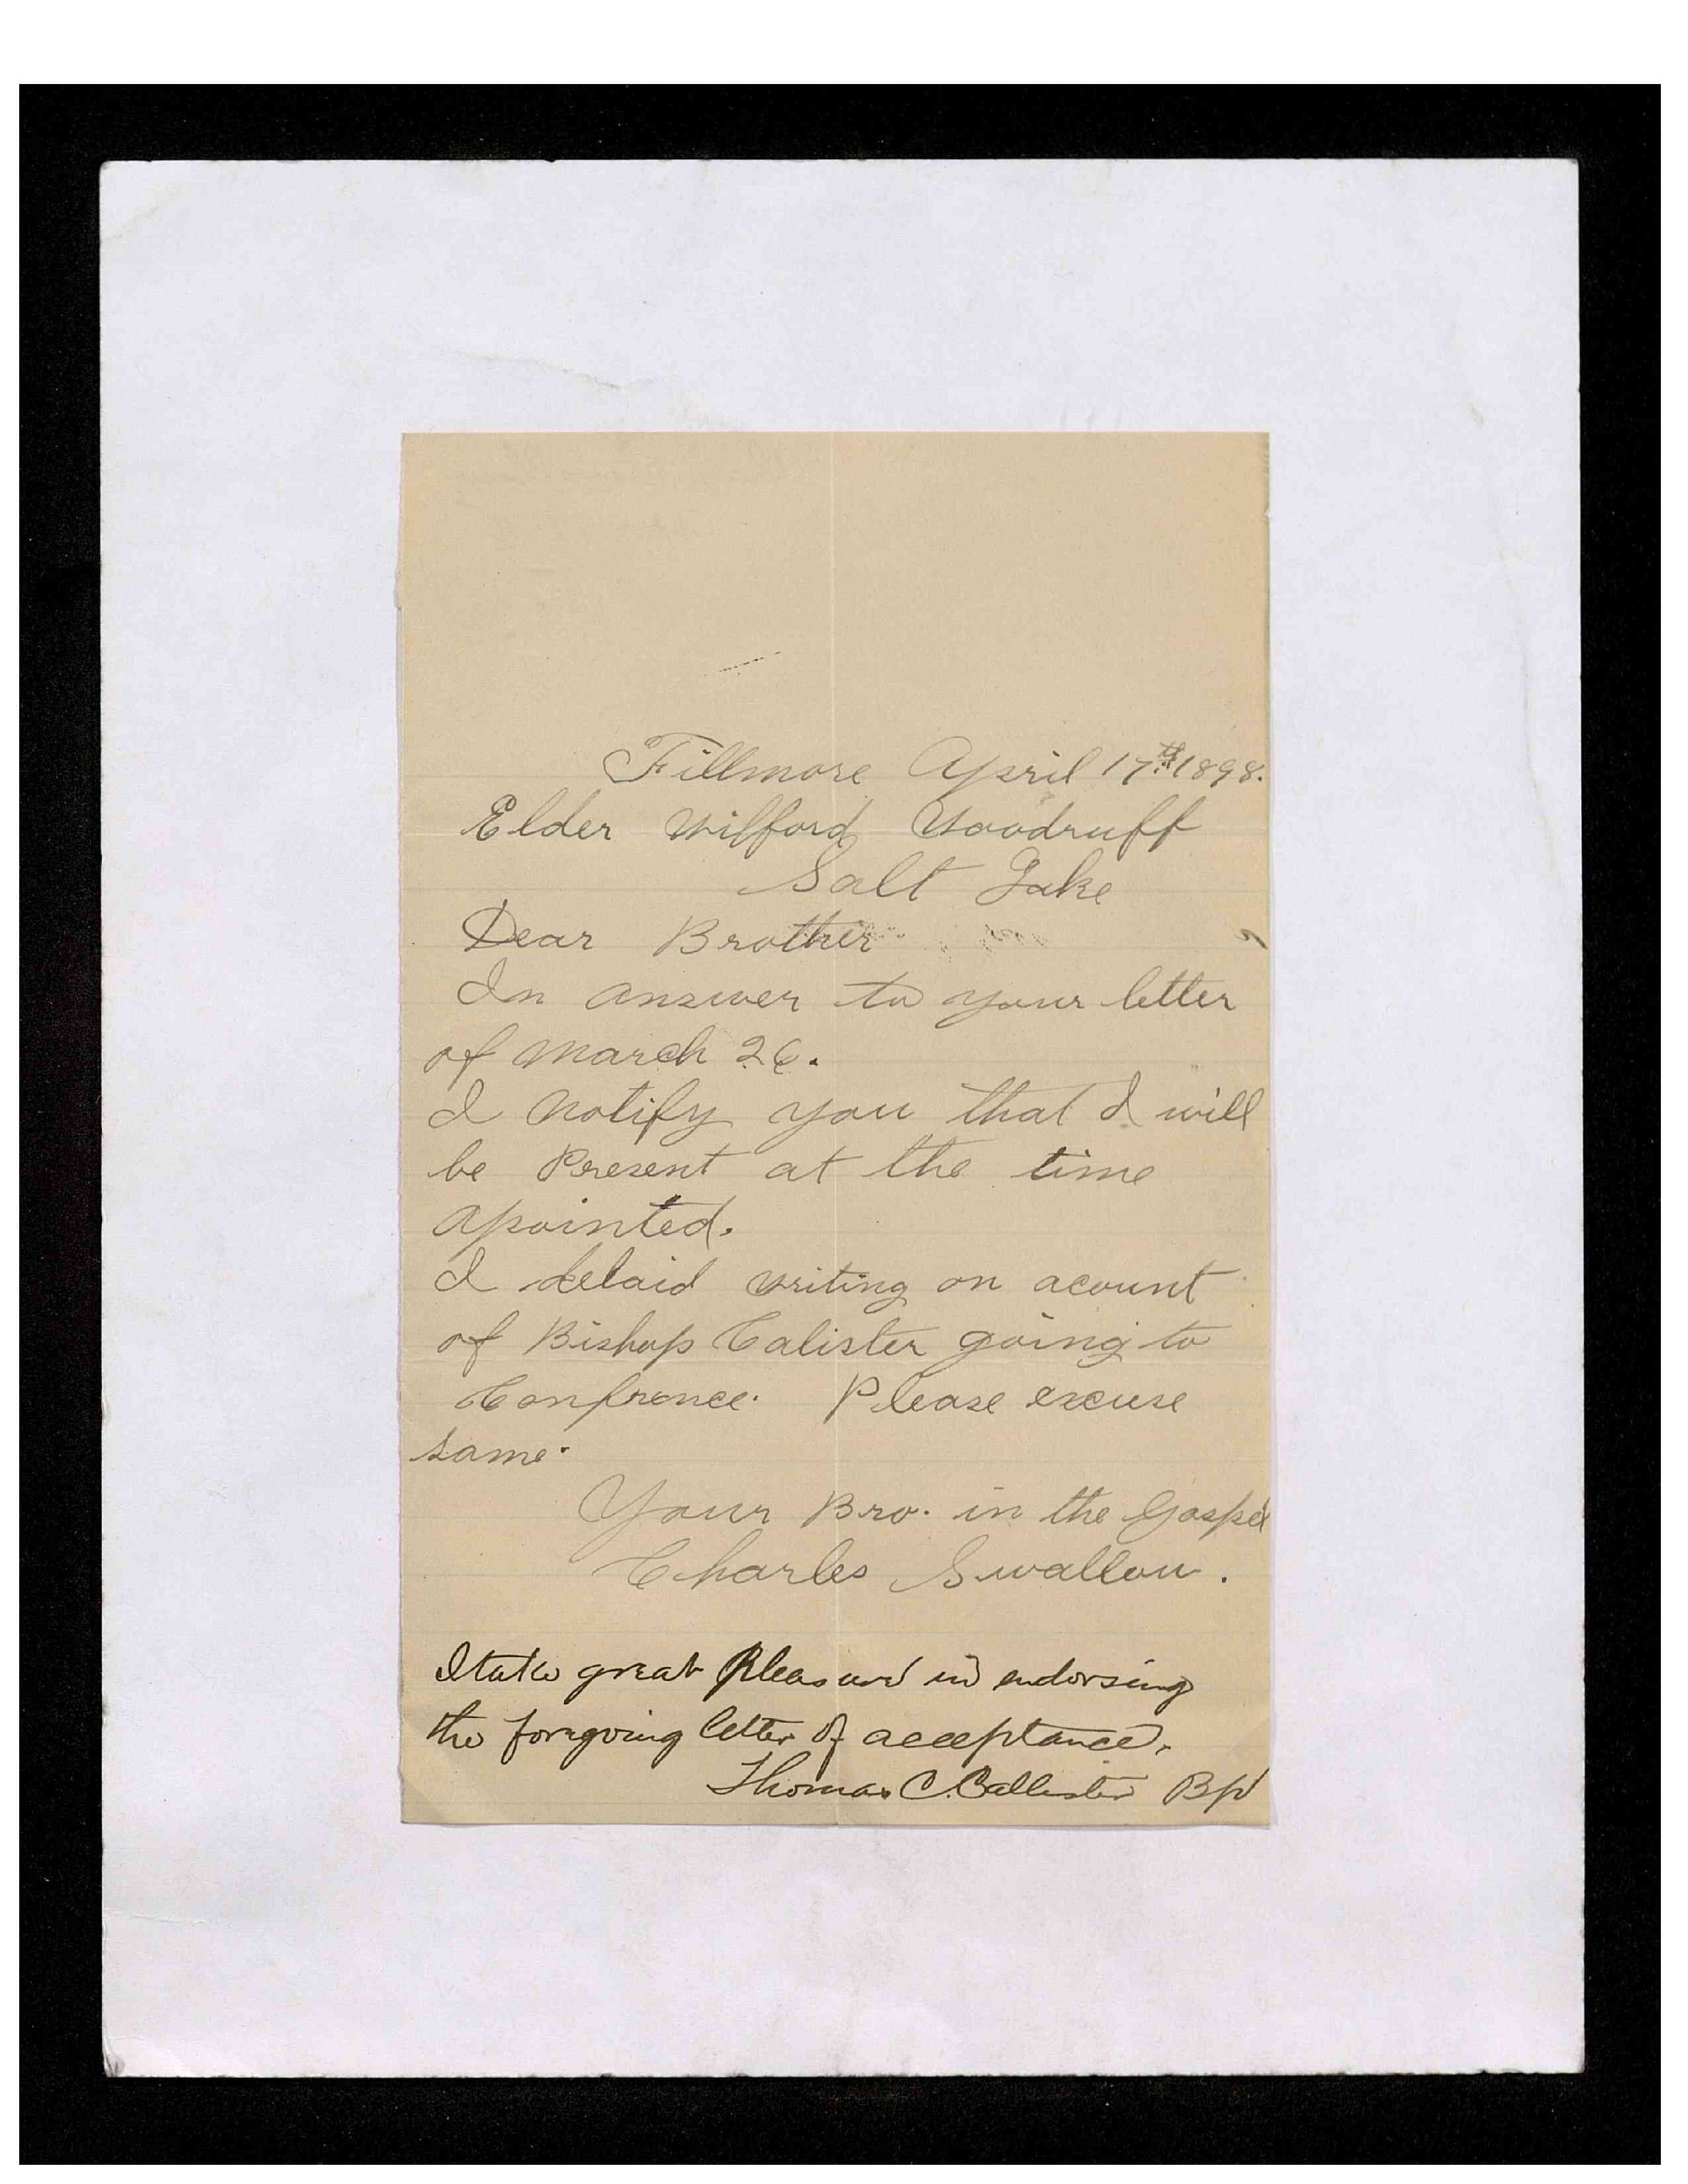 Fillmore April 17th 1898.
Elder Wilford Woodruff
Salt Lake
Dear Brother
In answer to your letter
of March 26.
I notify you that I will
be Present at the time
apointed.
I delaid writing on acount
of Bishop Calister going to
Confrence. Please excuse
same.
Your Bro. in the Gospel
Charles Swallow.
I take great Pleasure in endorsing
the foregoing letter of acceptance,
Thomas C. Callister Bp